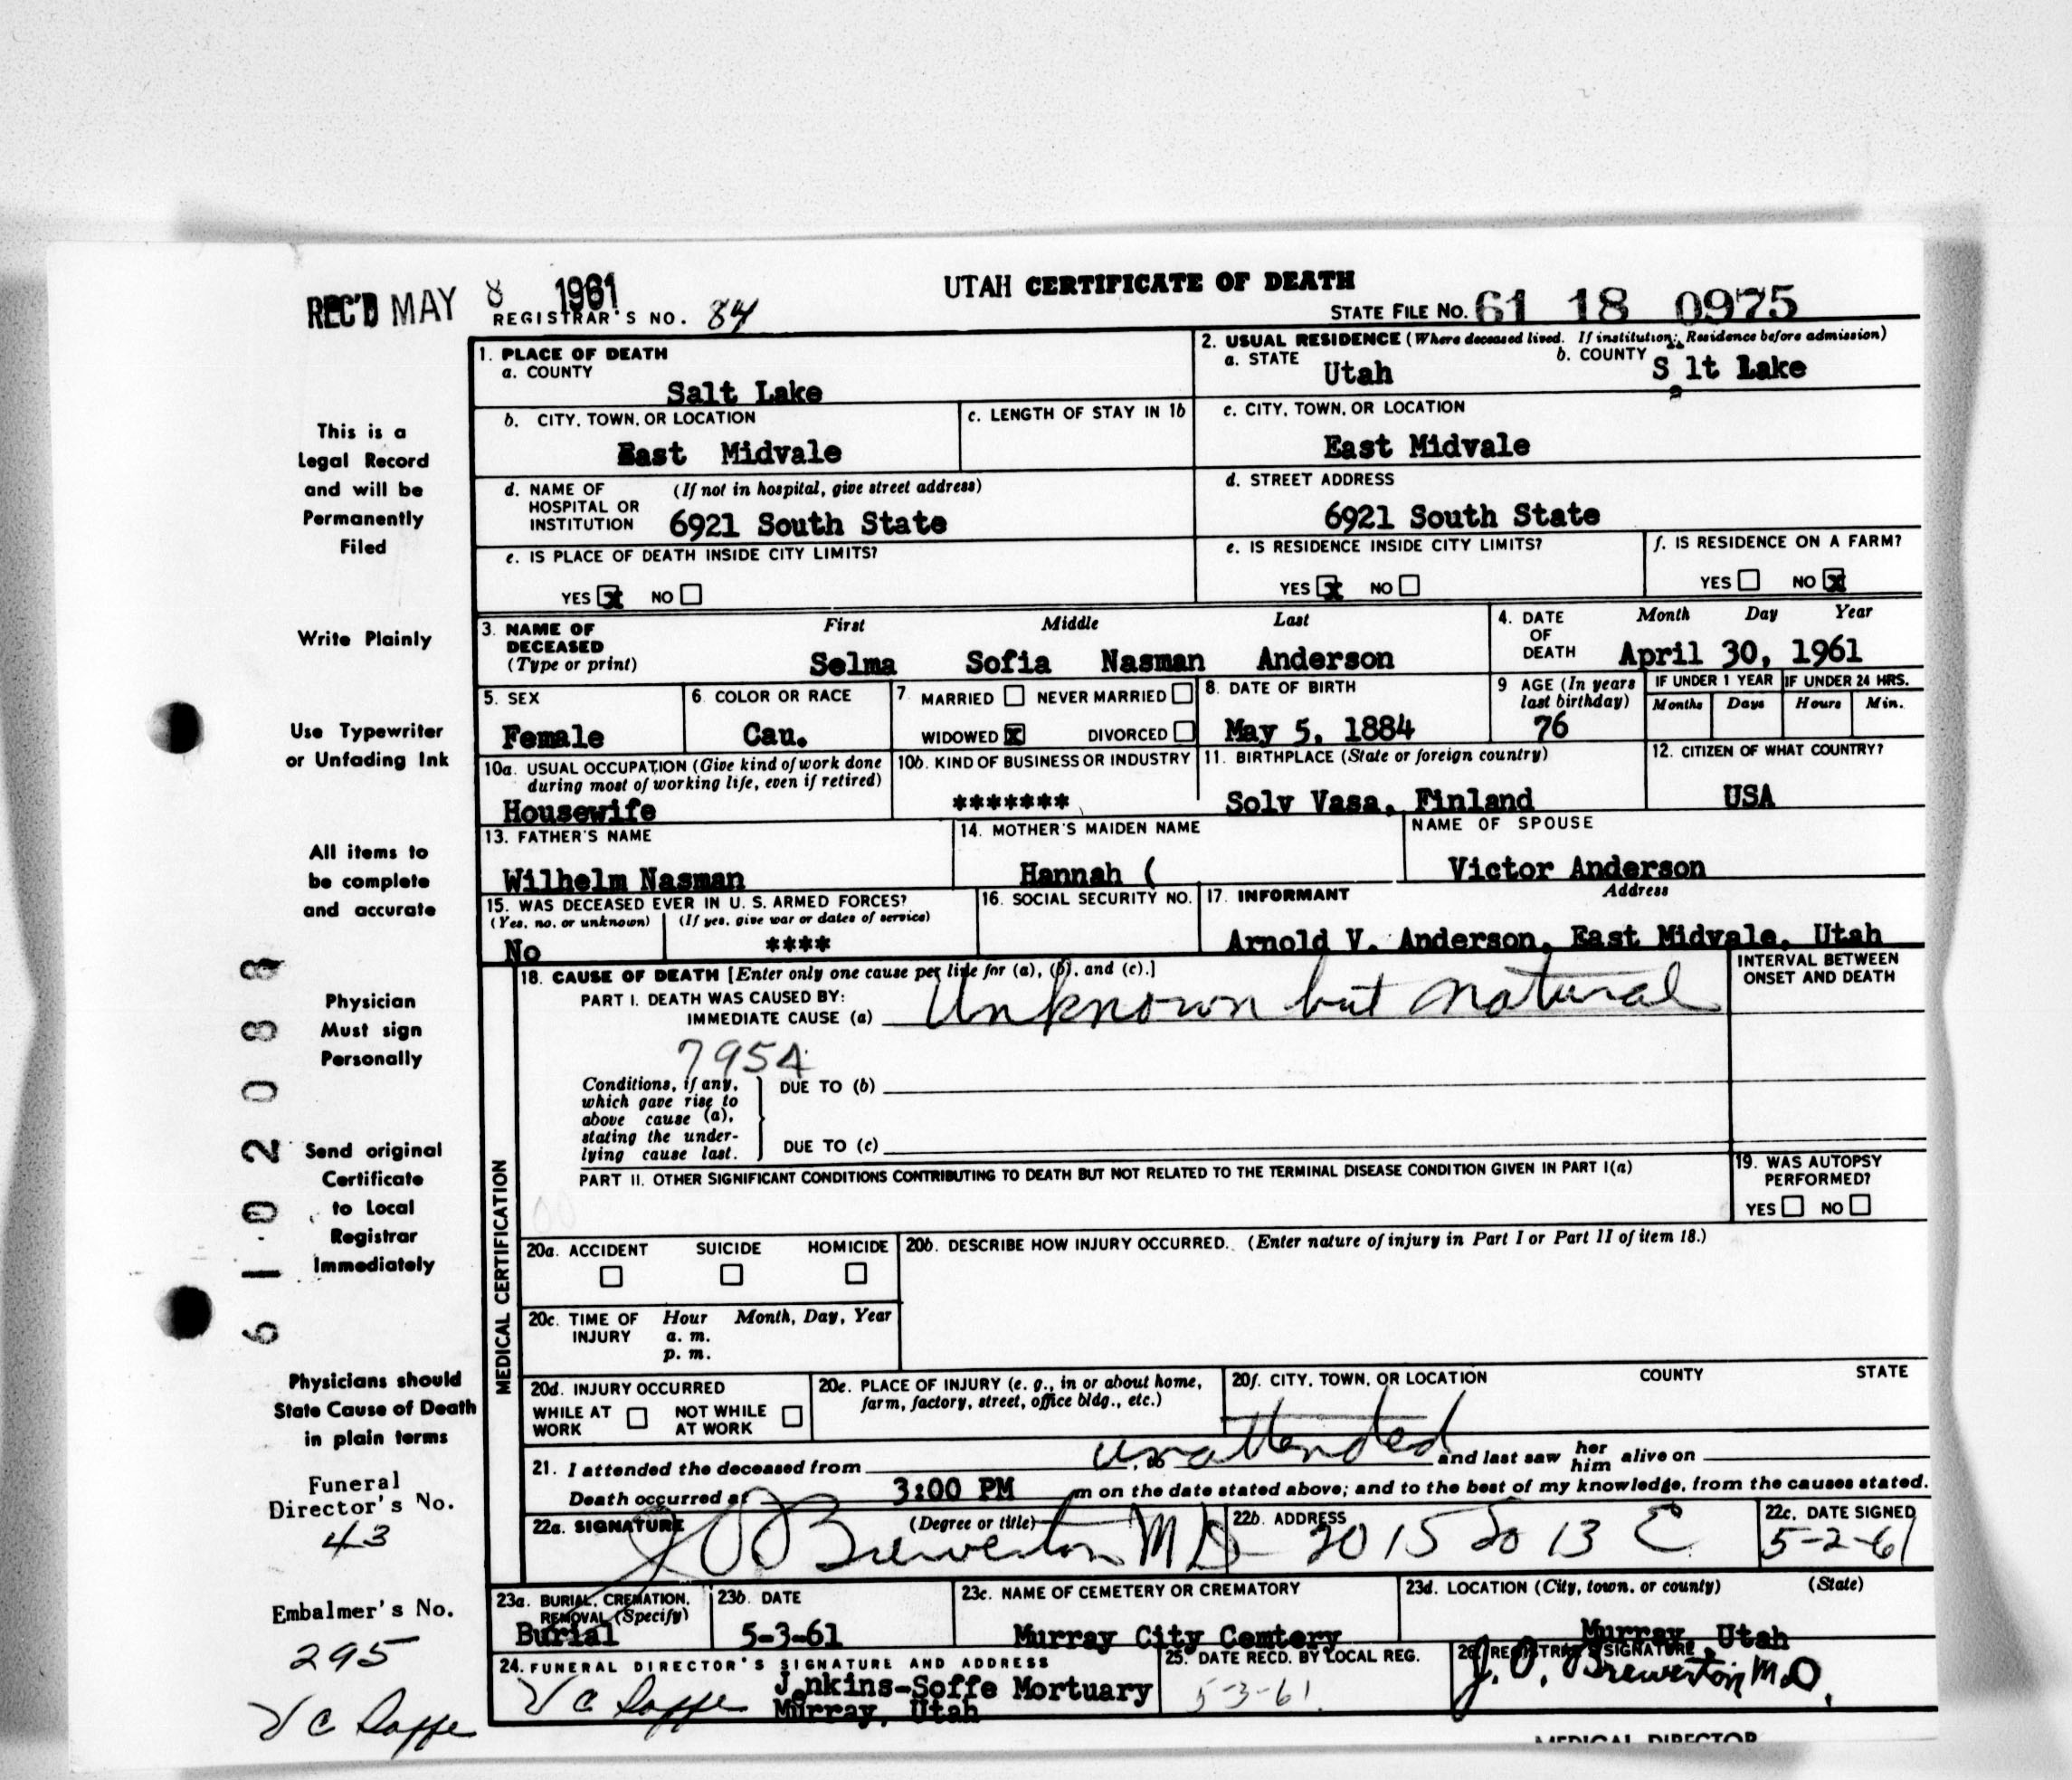 REC'D MAY 8 1961
REGISTRAR'S NO. 84
UTAH CERTIFICATE OF DEATH
STATE FILE NO. 61 18 0975
1. PLACE OF DEATH
a. COUNTY
Salt Lake
2. USUAL RESIDENCE (Where deceased lived. If institution: Residence before admission)
a. STATE Utah
b. COUNTY Salt Lake
b. CITY, TOWN, OR LOCATION
East Midvale
c. LENGTH OF STAY IN 1b
c. CITY, TOWN, OR LOCATION
East Midvale
d. NAME OF HOSPITAL OR INSTITUTION
(If not in hospital, give street address)
6921 South State
d. STREET ADDRESS
6921 South State
e. IS PLACE OF DEATH INSIDE CITY LIMITS?
YES x NO
e. IS RESIDENCE INSIDE CITY LIMITS?
YES x NO
f. IS RESIDENCE ON A FARM?
YES NO x
3. NAME OF DECEASED
(Type or print)
First Middle Last
Selma Sofia Nasman Anderson
4. DATE OF DEATH
Month Day Year
April 30, 1961
5. SEX
Female
6. COLOR OR RACE
Cau.
7. MARRIED NEVER MARRIED
WIDOWED x DIVORCED
8. DATE OF BIRTH
May 5, 1884
9 AGE (In years last birthday)
76
IF UNDER 1 YEAR
Months Days
IF UNDER 24 HRS.
Hours Min.
10a. USUAL OCCUPATION (Give kind of work done during most of working life, even if retired)
Housewife
10b. KIND OF BUSINESS OR INDUSTRY
*******
11. BIRTHPLACE (State or foreign country)
Solv Vasa, Finland
12. CITIZEN OF WHAT COUNTRY?
USA
13. FATHER'S NAME
Wilhelm Nasman
14. MOTHER'S MAIDEN NAME
Hannah (
NAME OF SPOUSE
Victor Anderson
15. WAS DECEASED EVER IN U. S. ARMED FORCES?
(Yes, no, or unknown) (If yes, give war or dates of service)
No ****
16. SOCIAL SECURITY NO.
17. INFORMANT Address
Arnold V. Anderson, East Midvale, Utah
18. CAUSE OF DEATH [Enter only one cause per line for (a), (b), and (c).]
PART I. DEATH WAS CAUSED BY:
IMMEDIATE CAUSE (a) Unknown but natural
7954
Conditions, if any, which gave rise to above cause (a), stating the underlying cause last.
DUE TO (b)
DUE TO (c)
INTERVAL BETWEEN ONSET AND DEATH
PART II. OTHER SIGNIFICANT CONDITIONS CONTRIBUTING TO DEATH BUT NOT RELATED TO THE TERMINAL DISEASE CONDITION GIVEN IN PART I(a)
19. WAS AUTOPSY PERFORMED?
YES NO
MEDICAL CERTIFICATION
20a. ACCIDENT SUICIDE HOMICIDE
20b. DESCRIBE HOW INJURY OCCURRED. (Enter nature of injury in Part I or Part II of item 18.)
20c. TIME OF INJURY
Hour Month, Day, Year
a. m.
p. m.
20d. INJURY OCCURRED
WHILE AT WORK NOT WHILE AT WORK
20e. PLACE OF INJURY (e. g., in or about home, farm, factory, street, office bldg., etc.)
20f. CITY, TOWN, OR LOCATION COUNTY STATE
21. I attended the deceased from unattended and last saw her him alive on
Death occurred at 3:00 PM m on the date stated above; and to the best of my knowledge, from the causes stated.
22a. SIGNATURE (Degree or title)
J O Brewerton MD
22b. ADDRESS
2015 So 13 E
22c. DATE SIGNED
5-2-61
23a. BURIAL, CREMATION, REMOVAL (Specify)
Burial
23b. DATE
5-3-61
23c. NAME OF CEMETERY OR CREMATORY
Murray City Cemtery
23d. LOCATION (City, town, or county) (State)
Murray, Utah
24. FUNERAL DIRECTOR'S SIGNATURE AND ADDRESS
V C Soffe
Jenkins-Soffe Mortuary
Murray, Utah
25. DATE RECD. BY LOCAL REG.
5-3-61
26. REGISTRAR'S SIGNATURE
J. O. Brewerton M.D.
MEDICAL DIRECTOR
This is a
Legal Record
and will be
Permanently
Filed
Write Plainly
Use Typewriter
or Unfading Ink
All items to
be complete
and accurate
Physician
Must sign
Personally
Send original
Certificate
to Local
Registrar
Immediately
Physicians should
State Cause of Death
in plain terms
Funeral
Director's No.
43
Embalmer's No.
295
V C Soffe